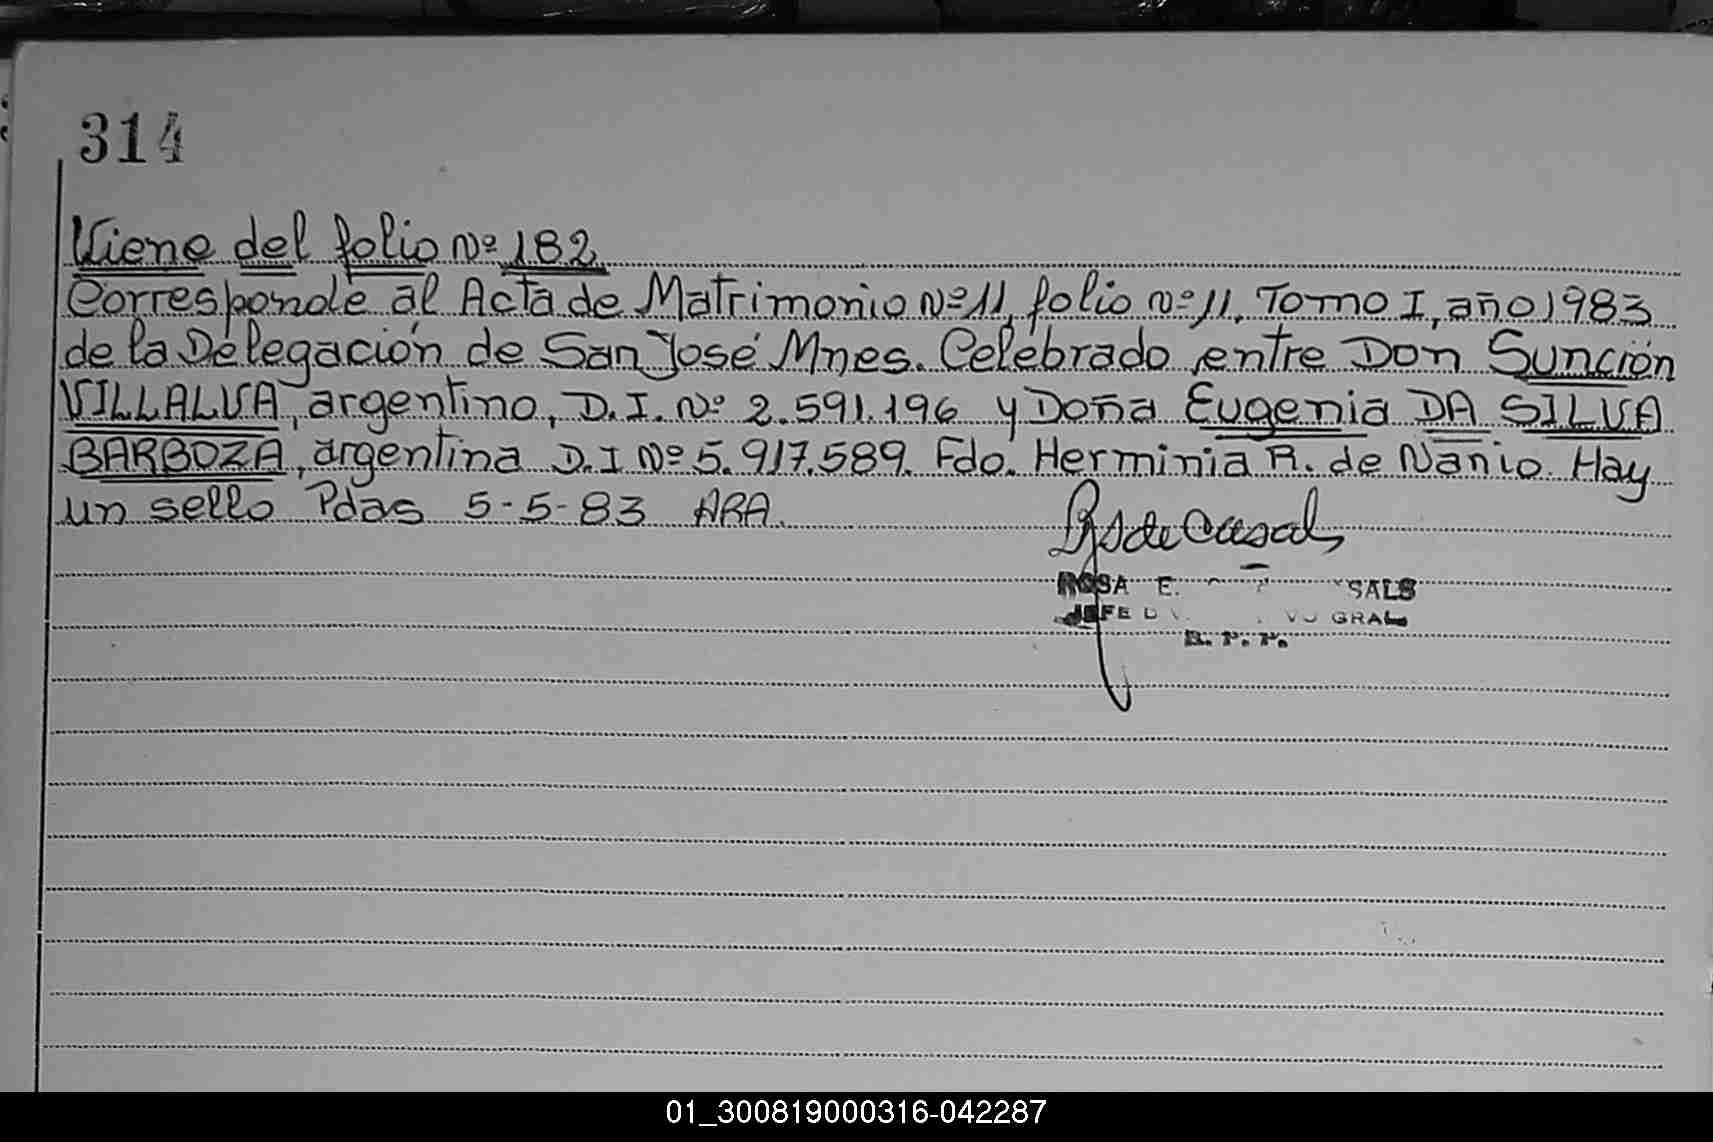 314
Viene del folio Nº 182
Corresponde al Acta de Matrimonio Nº 11, folio nº 11, Tomo I, año 1983
de la Delegación de San José Mnes. Celebrado entre Don Sunción
VILLALVA, argentino, D.I. Nº 2.591.196 y Doña Eugenia DA SILVA
BARBOZA, argentina D.I Nº 5.917.589. Fdo. Herminia R. de Nanio. Hay
un sello Pdas 5-5-83 ARA.
de Casals
ROSA E. SALS
JEFE GRAL
R. P. P.
01_300819000316-042287